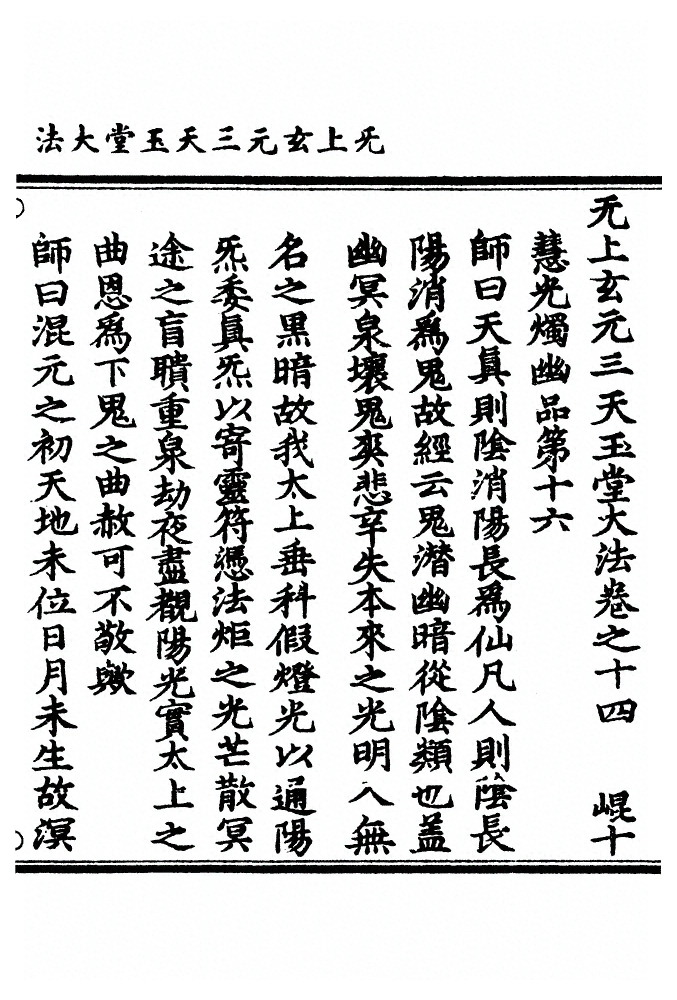 法大堂玉天三元玄上旡
旡上玄元三天玉堂大法卷之十四 崐十
慧光燭幽品第十六
師曰天眞則陰消陽長爲仙凡人則陰長
陽消爲鬼故經云鬼潛幽暗從陰類也盖
幽冥泉壤鬼爽悲辛失本來之光明入無
名之黑暗故我太上垂科假燈光以通陽
炁委眞炁以寄靈符憑法炬之光芒散冥
途之盲聵重泉劫夜盡覩陽光實太上之
曲恩爲下鬼之曲赦可不敬歟
師曰混元之初天地未位日月未生故溟